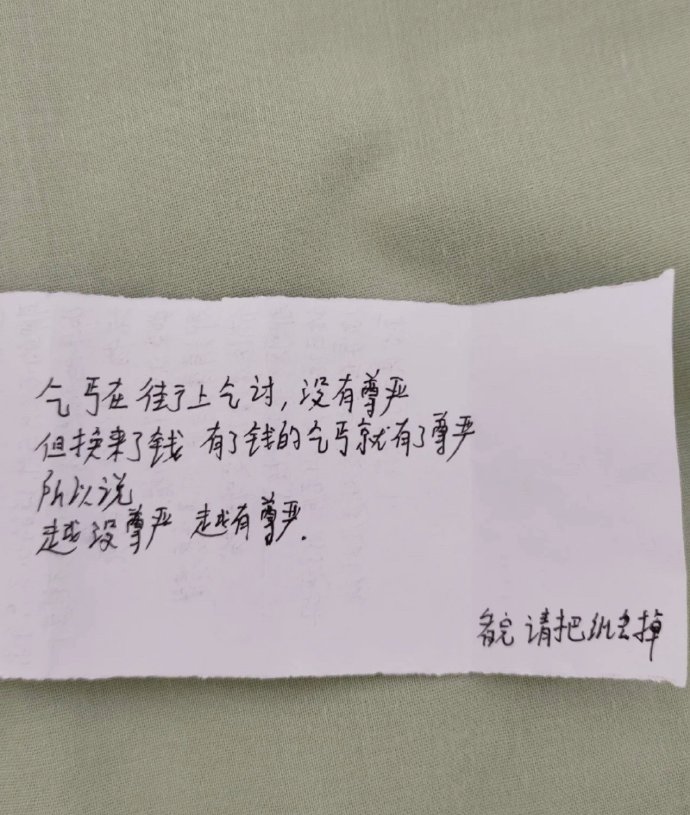 乞丐在街上乞讨，没有尊严
但换来了钱 有了钱的乞丐就有了尊严
所以说
越没尊严 越有尊严.
看完请把纸丢掉